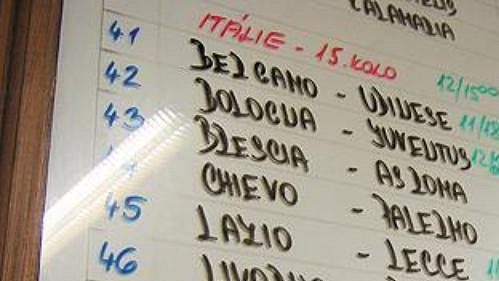 CALAMARIA
ITÁLIE - 15. KOLO
41 BERGAMO - UDINESE 12/15⁰⁰
42 BOLOGNA - JUVENTUS
43 BRESCIA - AS ROMA
CHIEVO - PALERMO
45 LAZIO - LECCE
46